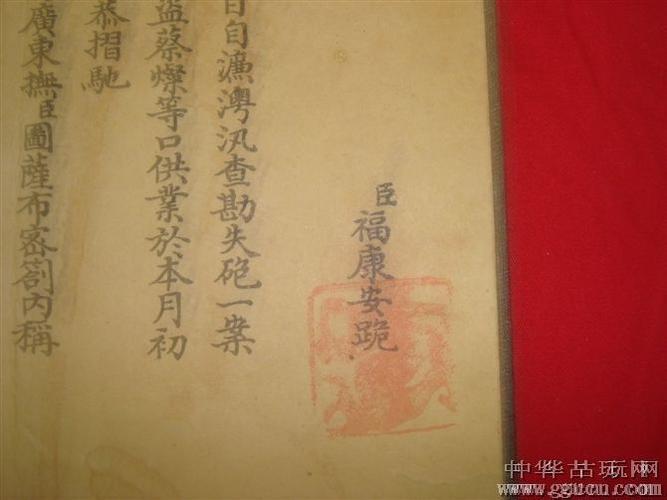 臣福康安跪
自漁灣汛查勘失砲一案
盜蔡燦等口供業於本月初
恭摺馳
廣東撫臣圖薩布密劄內稱
中华古玩网
www.gucn.com